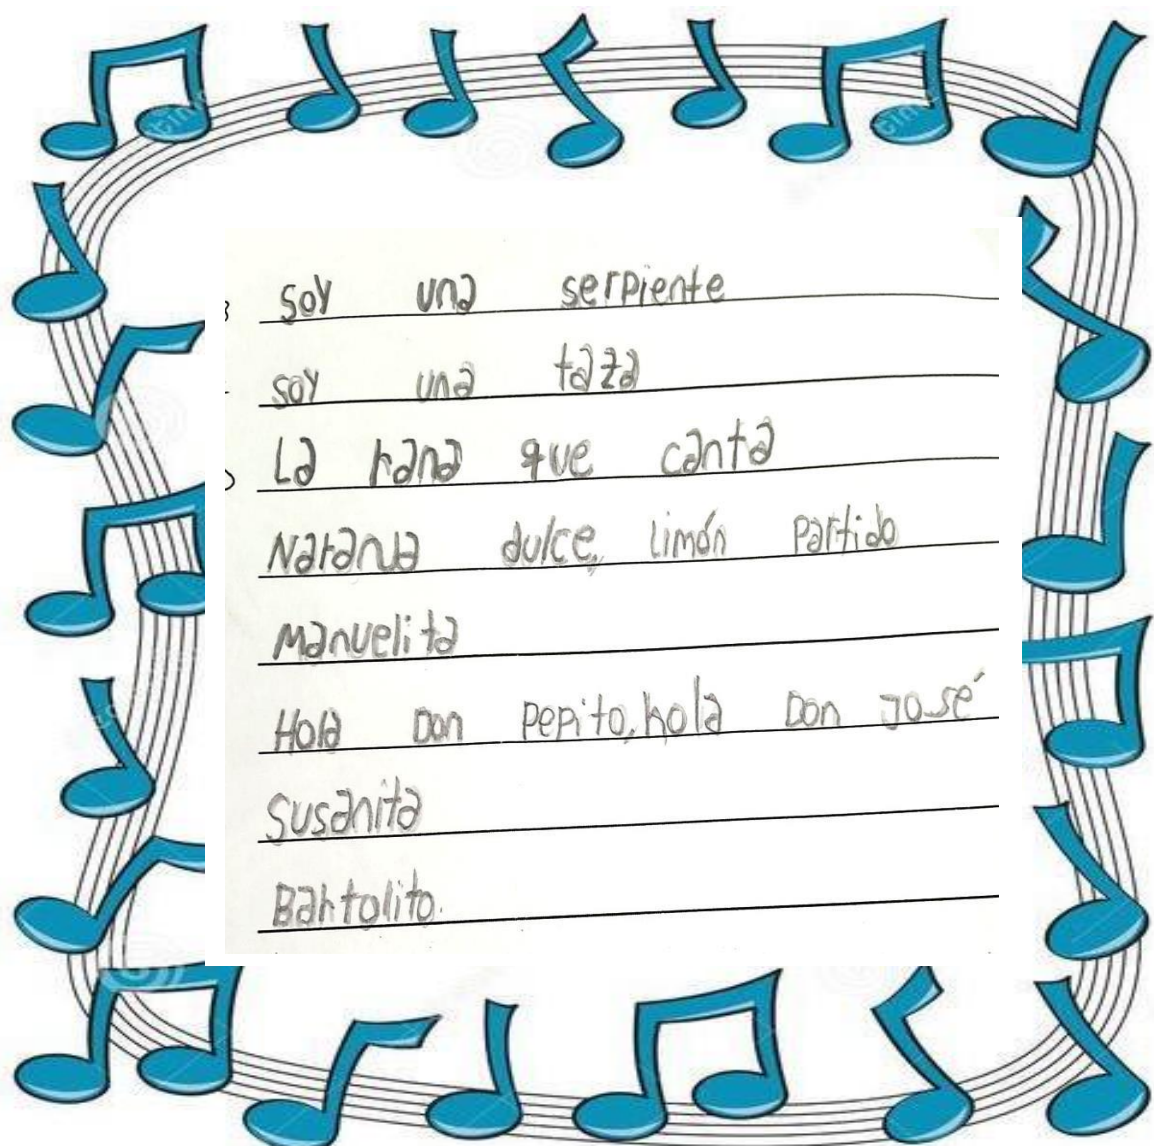 soy una serpiente
soy una taza
La rana que canta
Naranja dulce, limón partido
Manuelita
Hola Don Pepito, hola Don José
Susanita
Bartolito.